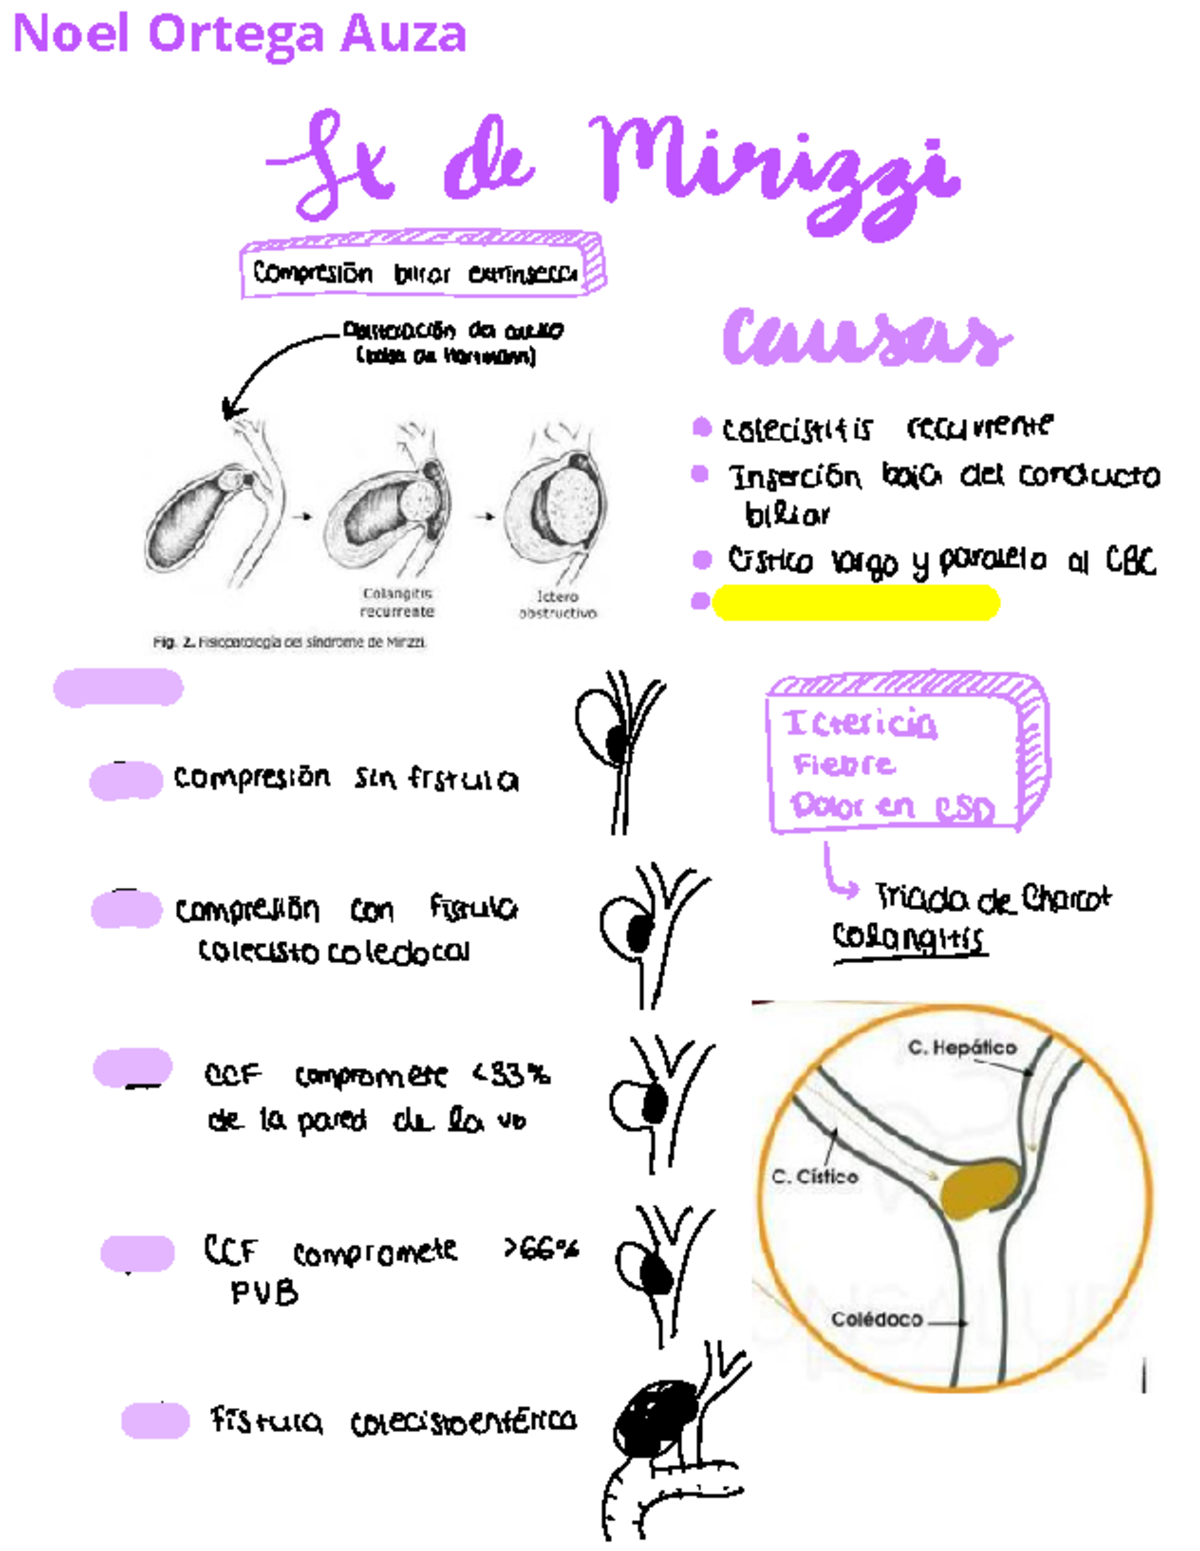 Noel Ortega Auza
Sx de Mirizzi
Compresión biliar extrínseca
Obliteración del cuello
(bolsa de Hartmann)
Colangitis
recurrente
Ictero
obstructivo
Fig. 2. Fisiopatología del síndrome de Mirizzi.
Causas
colecistitis recurrente
Inserción baja del conducto
biliar
Cístico largo y paralelo al CBC
compresión sin fístula
compresión con fístula
colecisto coledocal
CCF compromete <33%
de la pared de la vb
CCF compromete >66%
PVB
fístula colecistoentérica
Ictericia
Fiebre
Dolor en CSD
Triada de Charcot
Colangitis
C. Hepático
C. Cístico
Colédoco